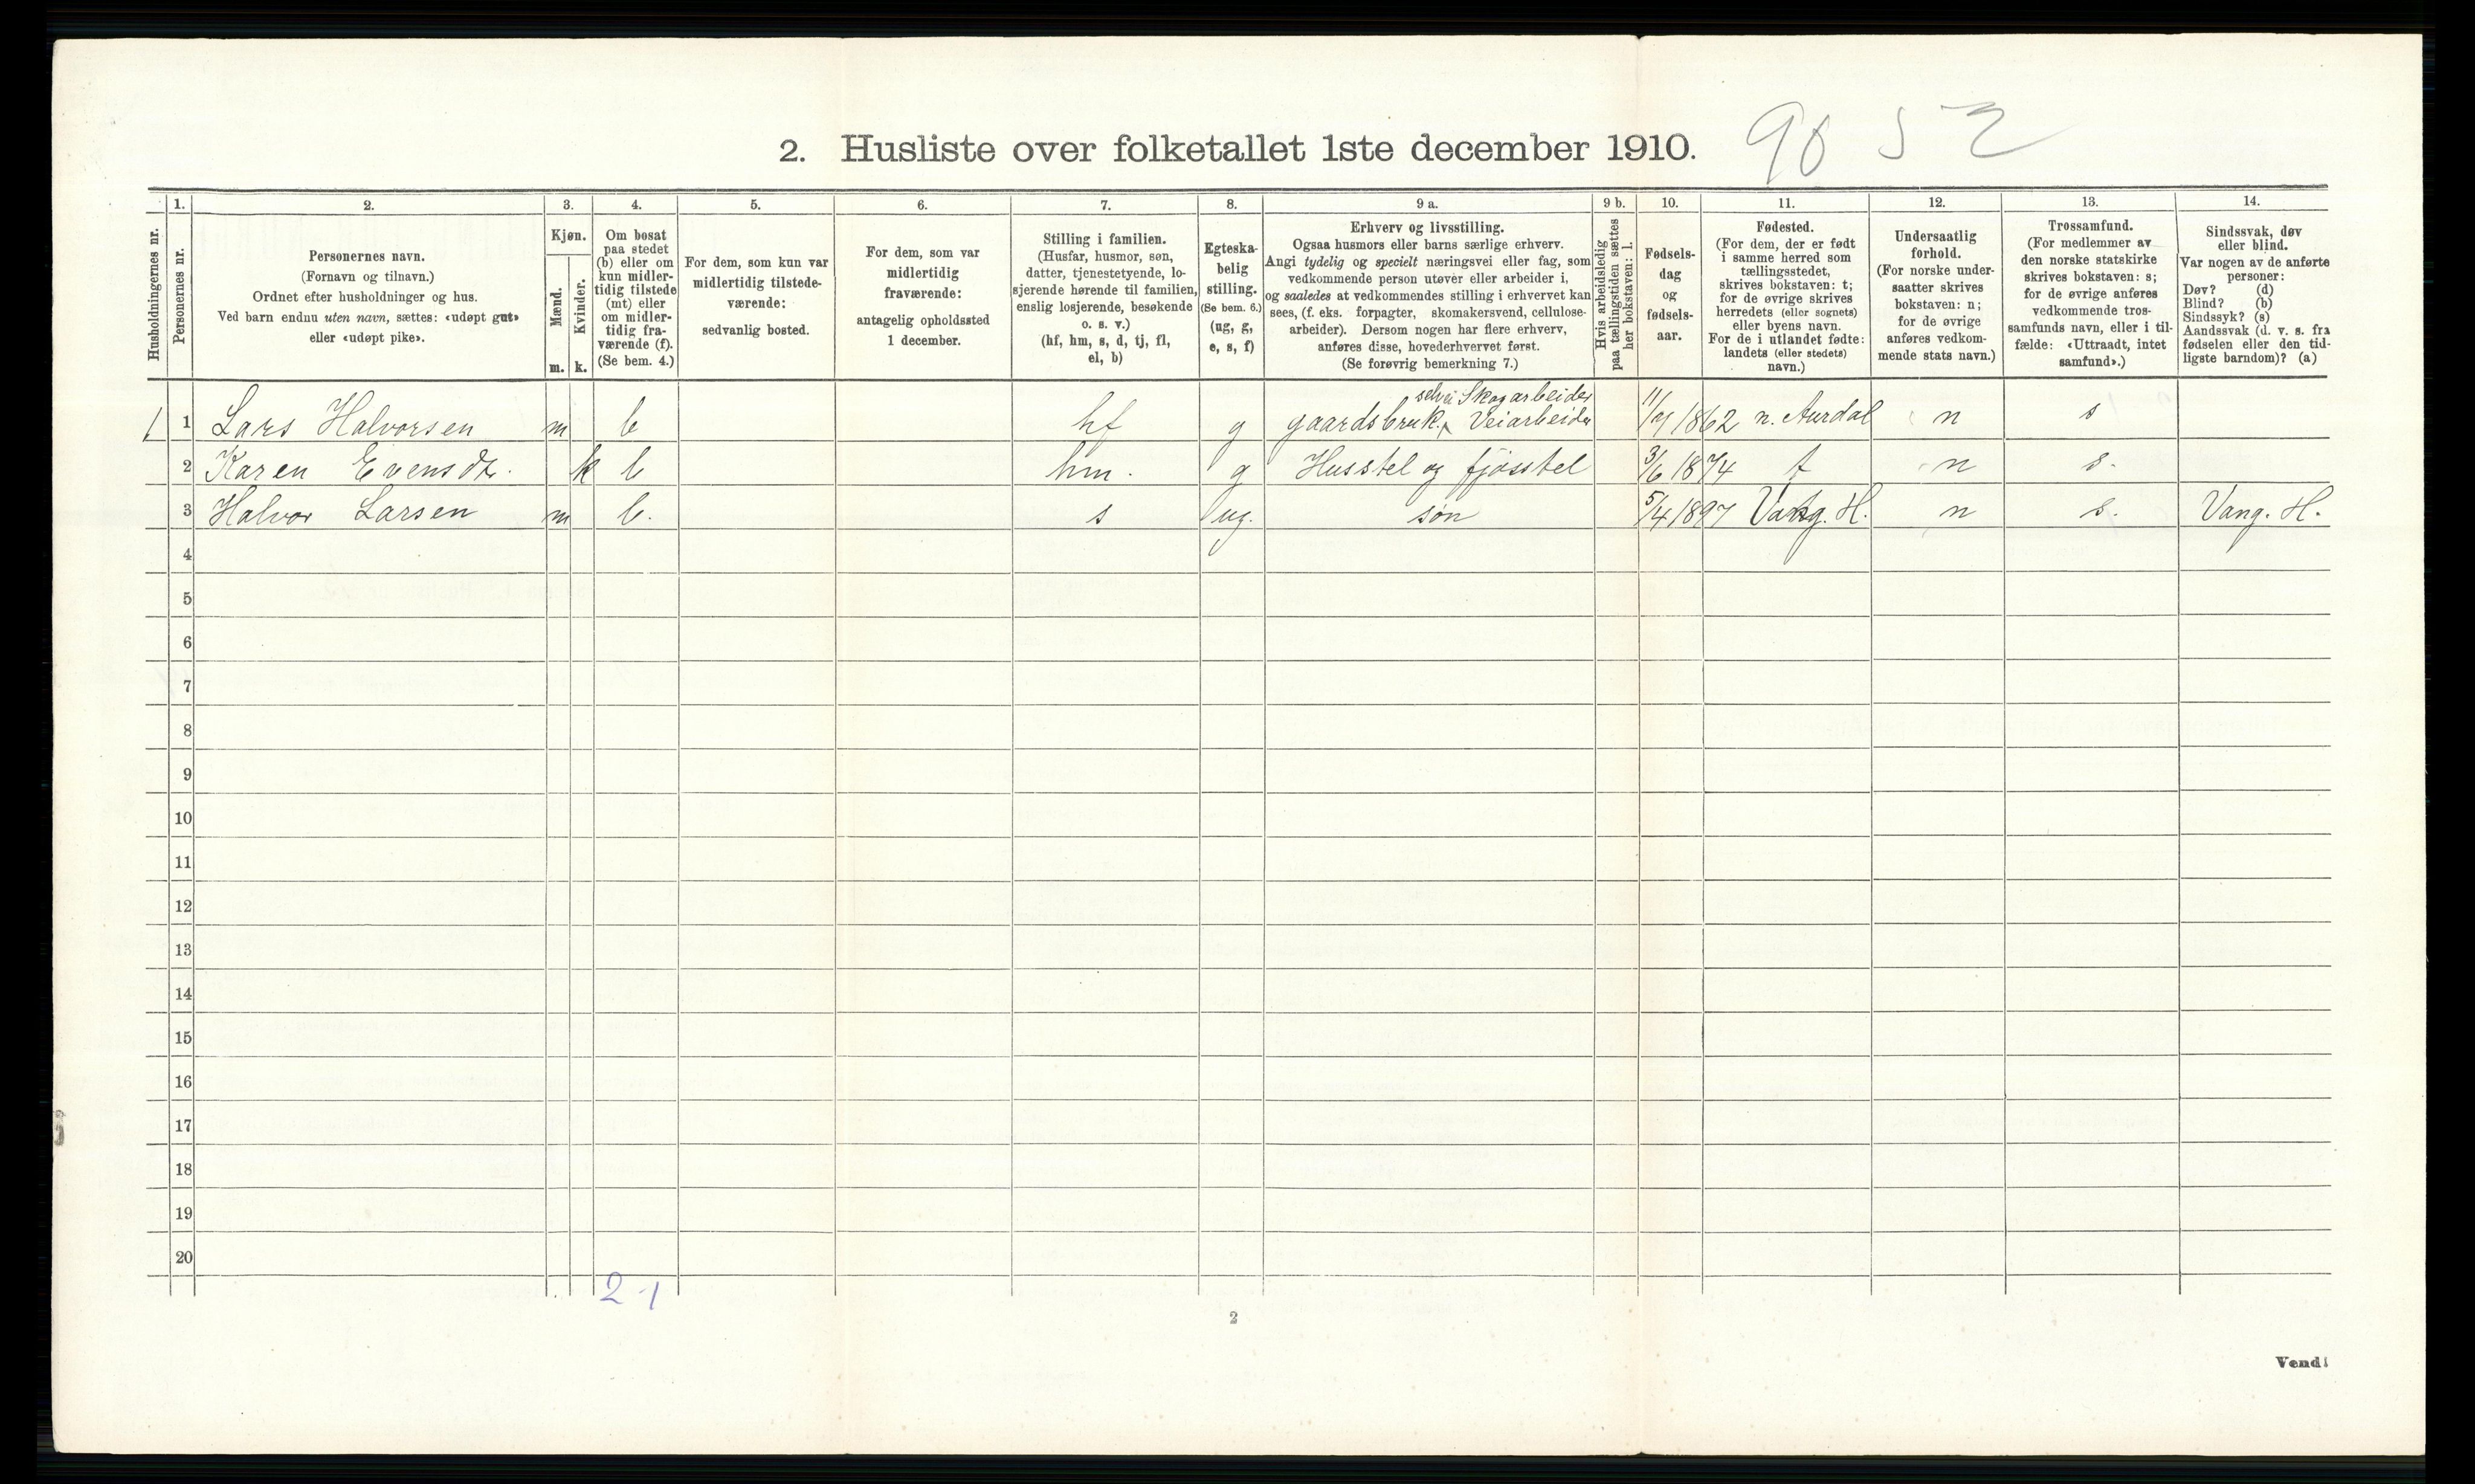 2. Husliste over folketallet 1ste december 1910. 90 52
1. 2. 3. 4. 5. 6. 7. 8. 9 a. 9 b. 10. 11. 12. 13. 14.
Husholdningernes nr.
Personernes nr.
Personernes navn.
(Fornavn og tilnavn.)
Ordnet efter husholdninger og hus.
Ved barn endnu uten navn, sættes: «udøpt gut»
eller «udøpt pike».
Kjøn.
Mænd.
Kvinder.
m. k.
Om bosat
paa stedet
(b) eller om
kun midler-
tidig tilstede
(mt) eller
om midler-
tidig fra-
værende (f).
(Se bem. 4.)
For dem, som kun var
midlertidig tilstede-
værende:
sedvanlig bosted.
For dem, som var
midlertidig
fraværende:
antagelig opholdssted
1 december.
Stilling i familien.
(Husfar, husmor, søn,
datter, tjenestetyende, lo-
sjerende hørende til familien,
enslig losjerende, besøkende
o. s. v.)
(hf, hm, s, d, tj, fl,
el, b)
Egteska-
belig
stilling.
(Se bem. 6.)
(ug, g,
e, s, f)
Erhverv og livsstilling.
Ogsaa husmors eller barns særlige erhverv.
Angi tydelig og specielt næringsvei eller fag, som
vedkommende person utøver eller arbeider i,
og saaledes at vedkommendes stilling i erhvervet kan
sees, (f. eks. forpagter, skomakersvend, cellulose-
arbeider). Dersom nogen har flere erhverv,
anføres disse, hovederhvervet først.
(Se forøvrig bemerkning 7.)
Hvis arbeidsledig
paa tællingstiden sættes
her bokstaven: l.
Fødsels-
dag
og
fødsels-
aar.
Fødested.
(For dem, der er født
i samme herred som
tællingsstedet,
skrives bokstaven: t;
for de øvrige skrives
herredets (eller sognets)
eller byens navn.
For de i utlandet fødte:
landets (eller stedets)
navn.)
Undersaatlig
forhold.
(For norske under-
saatter skrives
bokstaven: n;
for de øvrige
anføres vedkom-
mende stats navn.)
Trossamfund.
(For medlemmer av
den norske statskirke
skrives bokstaven: s;
for de øvrige anføres
vedkommende tros-
samfunds navn, eller i til-
fælde: «Uttraadt, intet
samfund».)
Sindssvak, døv
eller blind.
Var nogen av de anførte
personer:
Døv? (d)
Blind? (b)
Sindssyk? (s)
Aandssvak (d. v. s. fra
fødselen eller den tid-
ligste barndom)? (a)
selvei Skogarbeider
1 1 Lars Halvorsen m b hf g gaardsbruk. Veiarbeider 11/9 1862 n. Aurdal n s
2 Karen Evensdt. k b hm. g Husstel og fjøsstel 3/6 1874 t n s.
3 Halvor Larsen m b. s ug. søn 5/4 1897 Vang. H. n s. Vang. H.
4
5
6
7
8
9
10
11
12
13
14
15
16
17
18
19
20
2 1
2
Vend!